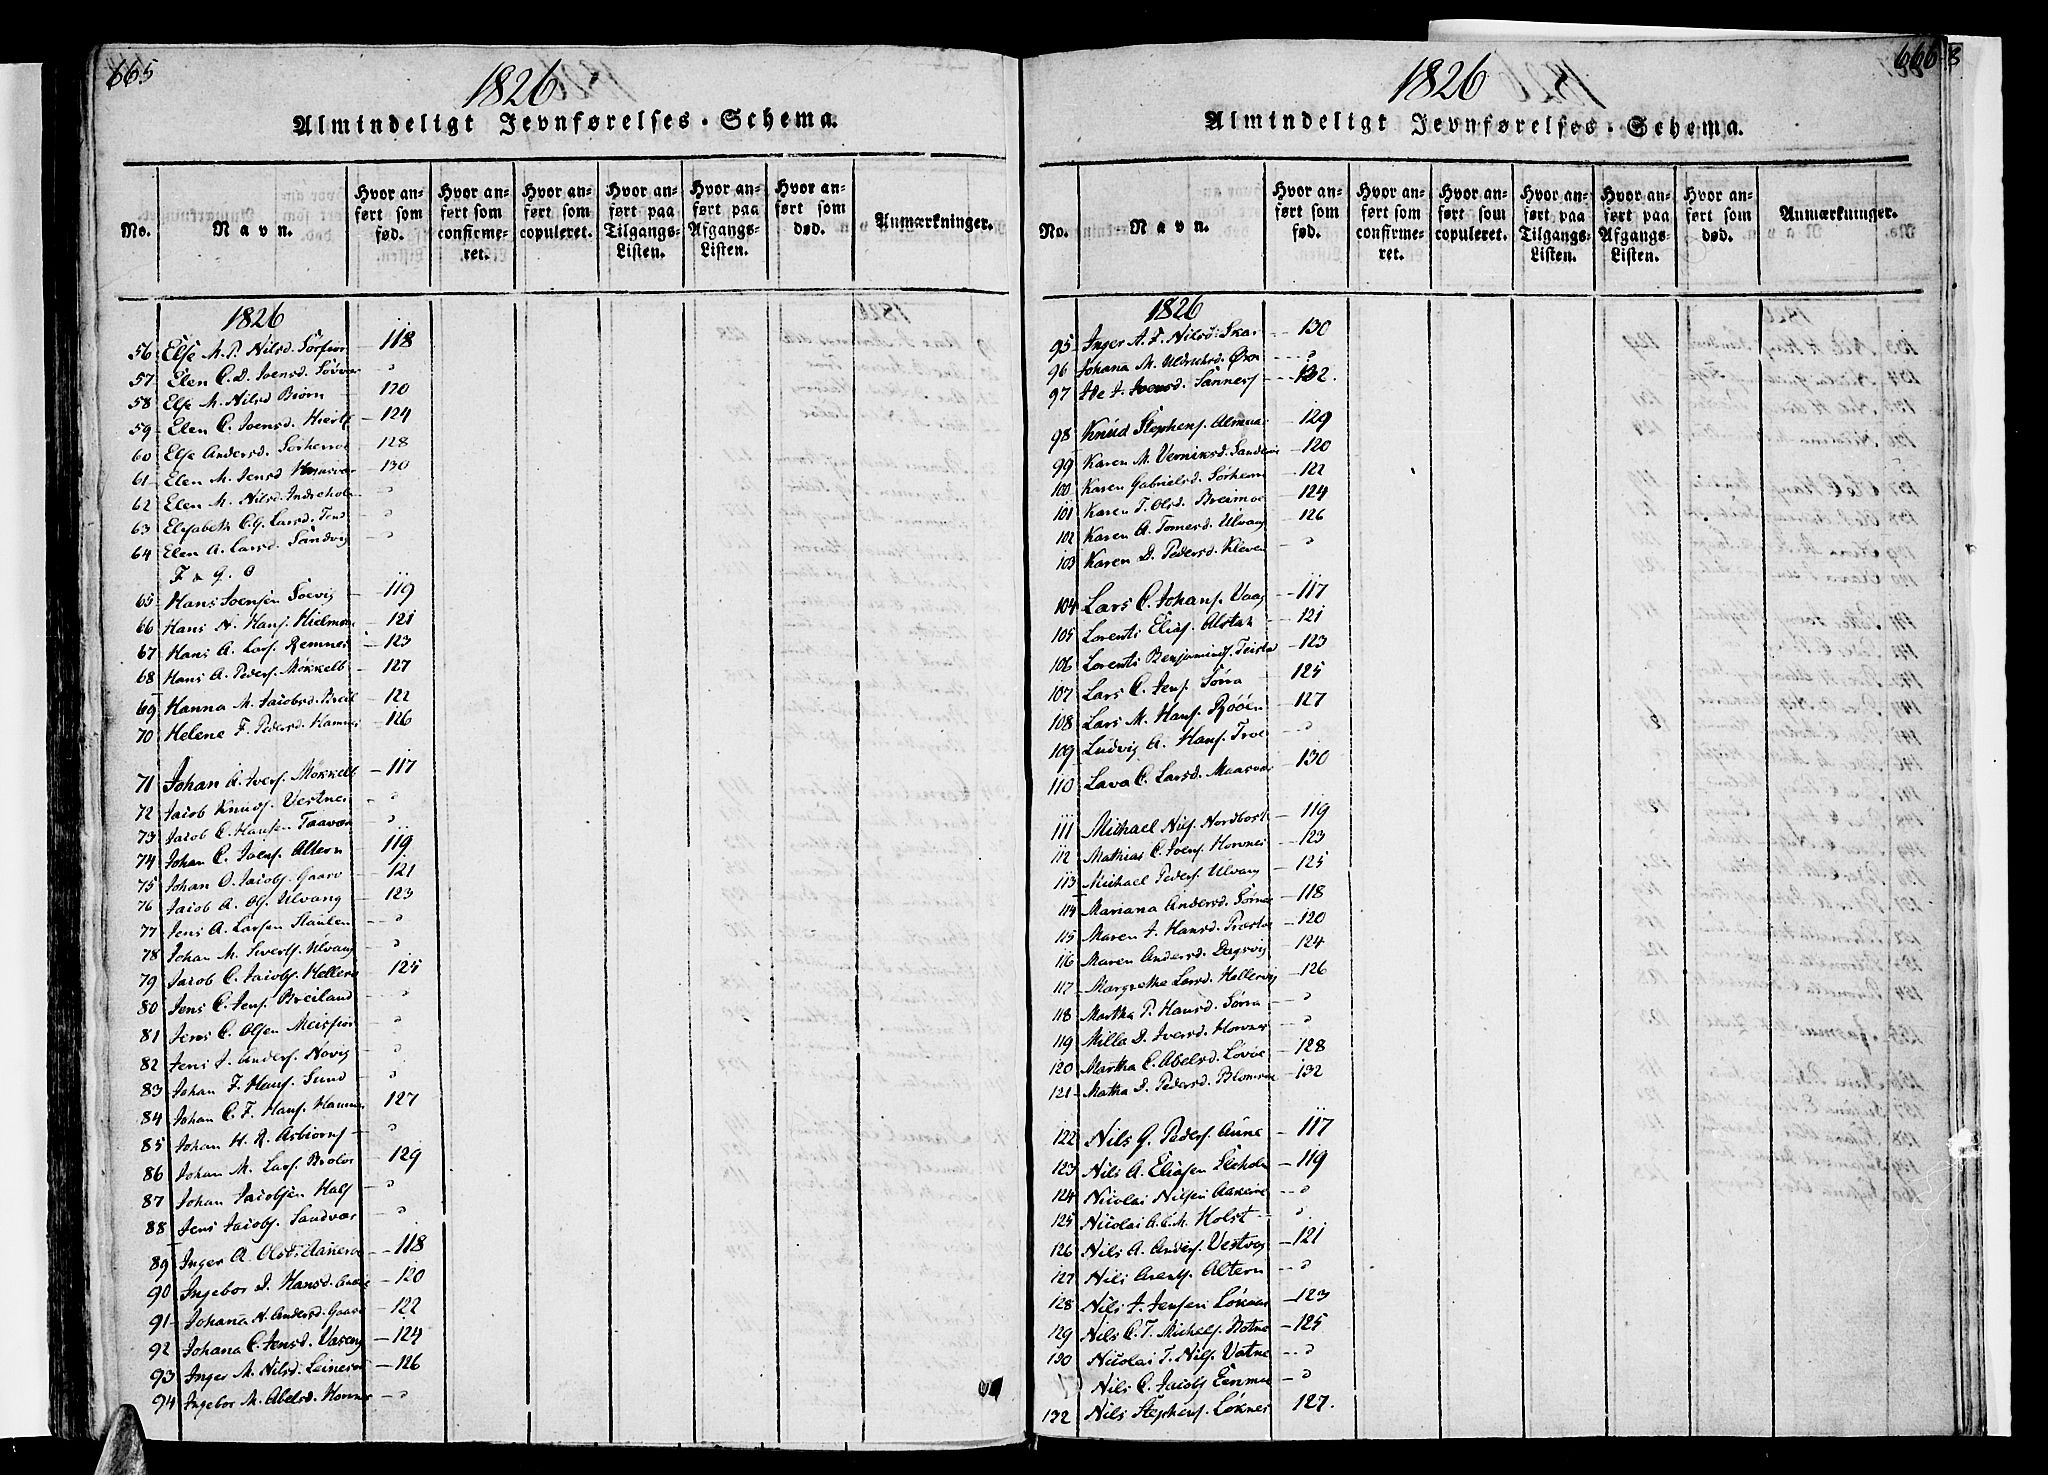 665
1826
Almindeligt Jevnførelses-Schema.
No.
Navn.
Hvor anført som fød.
Hvor anført som confirmeret.
Hvor anført som copuleret.
Hvor anført paa Tilgangs-Listen.
Hvor anført paa Afgangs-Listen.
Hvor anført som død.
Anmærkninger.
1826
56 Else M. P. Nilsd. Sörfior 118
57 Elen C. D. Joensd. Sövær "
58 Else M. Nilsd Biörn 120
59 Elen C. Joensd. 124
60 Else Andersd. 128
61 Elen M. Jensd 130
62 Elen M. Nilsd. Indreholm "
63 Elisabeth C. G. Larsd. "
64 Elen A. Larsd. Sandvig "
F & G. O
65 Hans Joensen Soevig 119
66 Hans N. Hans. Hielmse 121
67 Hans A. Lars. Remnes 123
68 Hans A. Peders. Mökkelb 127
69 Hanna M. Jacobsd. 122
70 Helene F. Pedersd. Hamnes 126
71 Johan A. Ivers. Mökkelb 117
72 Jacob Knuds. Vestnes "
73 Jacob C. Hansen Taavær "
74 Johan C. Joens. Altern 119
75 Johan O. Jacobs. Gaarv 121
76 Jacob A. Ols. Ulvang 123
77 Jens A. Larsen Staulen "
78 Johan M. Siverts. Ulvang "
79 Jacob C. Jacobs. Hellerv 125
80 Jens C. Jens. Breiland "
81 Jens C. Olsen Meisfior "
82 Jens J. Anders. Növig "
83 Johan F. Hans. Sund "
84 Johan C. F. Hans. Hamnes 127
85 Johan H. R. Asbiörns "
86 Johan M. Lars. Brolos 129
87 Johan Jacobsen Hals "
88 Jens Jacobs. Sandvær "
89 Inger A. Olsd. 118
90 Ingebor D. Hansd. 120
91 Johana N. Andersd. Gaarv 122
92 Johana C. Jensd. 124
93 Inger M. Nilsd. Leinesod 126
94 Ingebor M. Abelsd. Hovnes "
666
1826
Almindeligt Jevnførelses-Schema.
No.
Navn.
Hvor anført som fød.
Hvor anført som confirmeret.
Hvor anført som copuleret.
Hvor anført paa Tilgangs-Listen.
Hvor anført paa Afgangs-Listen.
Hvor anført som død.
Anmærkninger.
1826
95 Inger A. F. Nilsd. Skar 130
96 Johana M. Uldriksd. Öron "
97 Ide J. Joensd. Sannes 132.
98 Knud Stephens. 129
99 Karen M. Verniksd. 120
100 Karen Gabrielsd. Sörhem 122
101 Karen T. Olsd. Breimoe 124
102 Karen A. Tomesd. Ulvang 126
103 Karen D. Pedersd. Kleven "
104 Lars C. Johans. Vaag 117
105 Lorents Elias. Alstah 121
106 Lorents Benjamins. Teista 123
107 Lars C. Jens. Sörra 125
108 Lars M. Hans. Rööen 127
109 Ludvig A. Hans. Troe "
110 Lava C. Larsd. Maasvær 130
111 Michael Nils. Nordbost 119
112 Mathias C. Joens. Hovnes 123
113 Michael Peders. Ulvang 125
114 Mariana Andersd. 118
115 Maren J. Hansd. 120
116 Maren Andersd. Dagsvig 124
117 Margrethe Larsd. Hellervig 126
118 Martha P. Hansd. Sörra "
119 Milla D. Iversd. Hovnes "
120 Martha C. Abelsd. Lövöe 128
121 Matha D. Pedersd. 132
122 Nils G. Peders. Aune 117
123 Nils A. Eliasen 119
124 Nicolai Nilsen "
125 Nicolai A. C. M. Holst "
126 Nils A. Anders. Vestvog 121
127 Nils Arents. Altern "
128 Nils J. Jensen 123
129 Nils C. T. Michels. Botne 125
130 Nicolai T. Nils. Vatne "
Nils C. Jacobs "
132 Nils Stephens. Löknes 127.